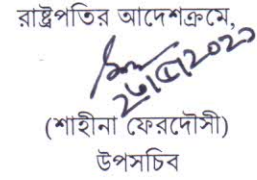 রাষ্ট্রপতির আদেশক্রমে,
২৬/৫/২০২১
(শাহীনা ফেরদৌসী)
উপসচিব